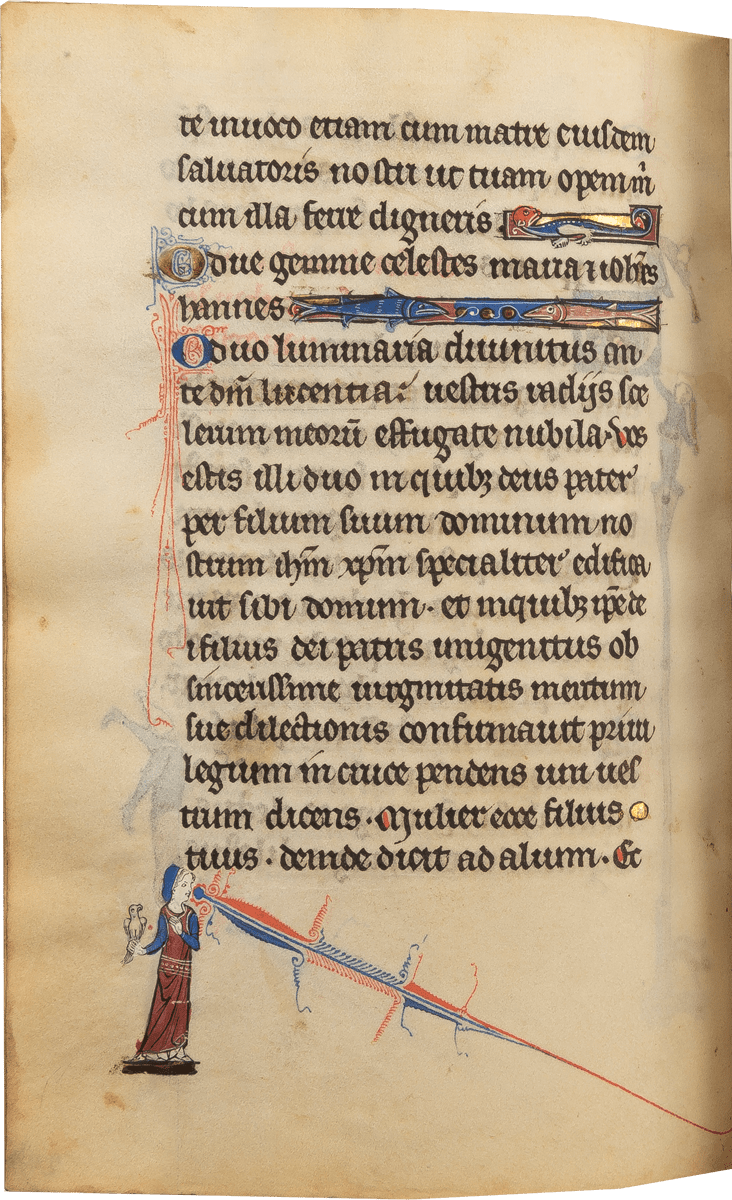 te inuoco etiam cum matre eiusdem
saluatoris nostri ut tuam opem m̄
cum illa ferre digneris.
O due gemme celestes maria ⁊ ioh̄es
hannes
O duo luminaria diuinitus an
te dm̄ lucentia: uestris radijs sce
lerum meorū effugate nubila. Vos
estis illi duo in quibꝫ deus pater
per filium suum dominum no
strum ih̄m xp̄m specialiter edifica
uit sibi domum. et in quibꝫ ip̄e de
i filius dei patris unigenitus ob
sincerissime uirginitatis meritum
sue dilectionis confirmauit priui
legium in cruce pendens uni ues
trum dicens. Mulier ecce filius
tuus. deinde dicit ad alium. Ec